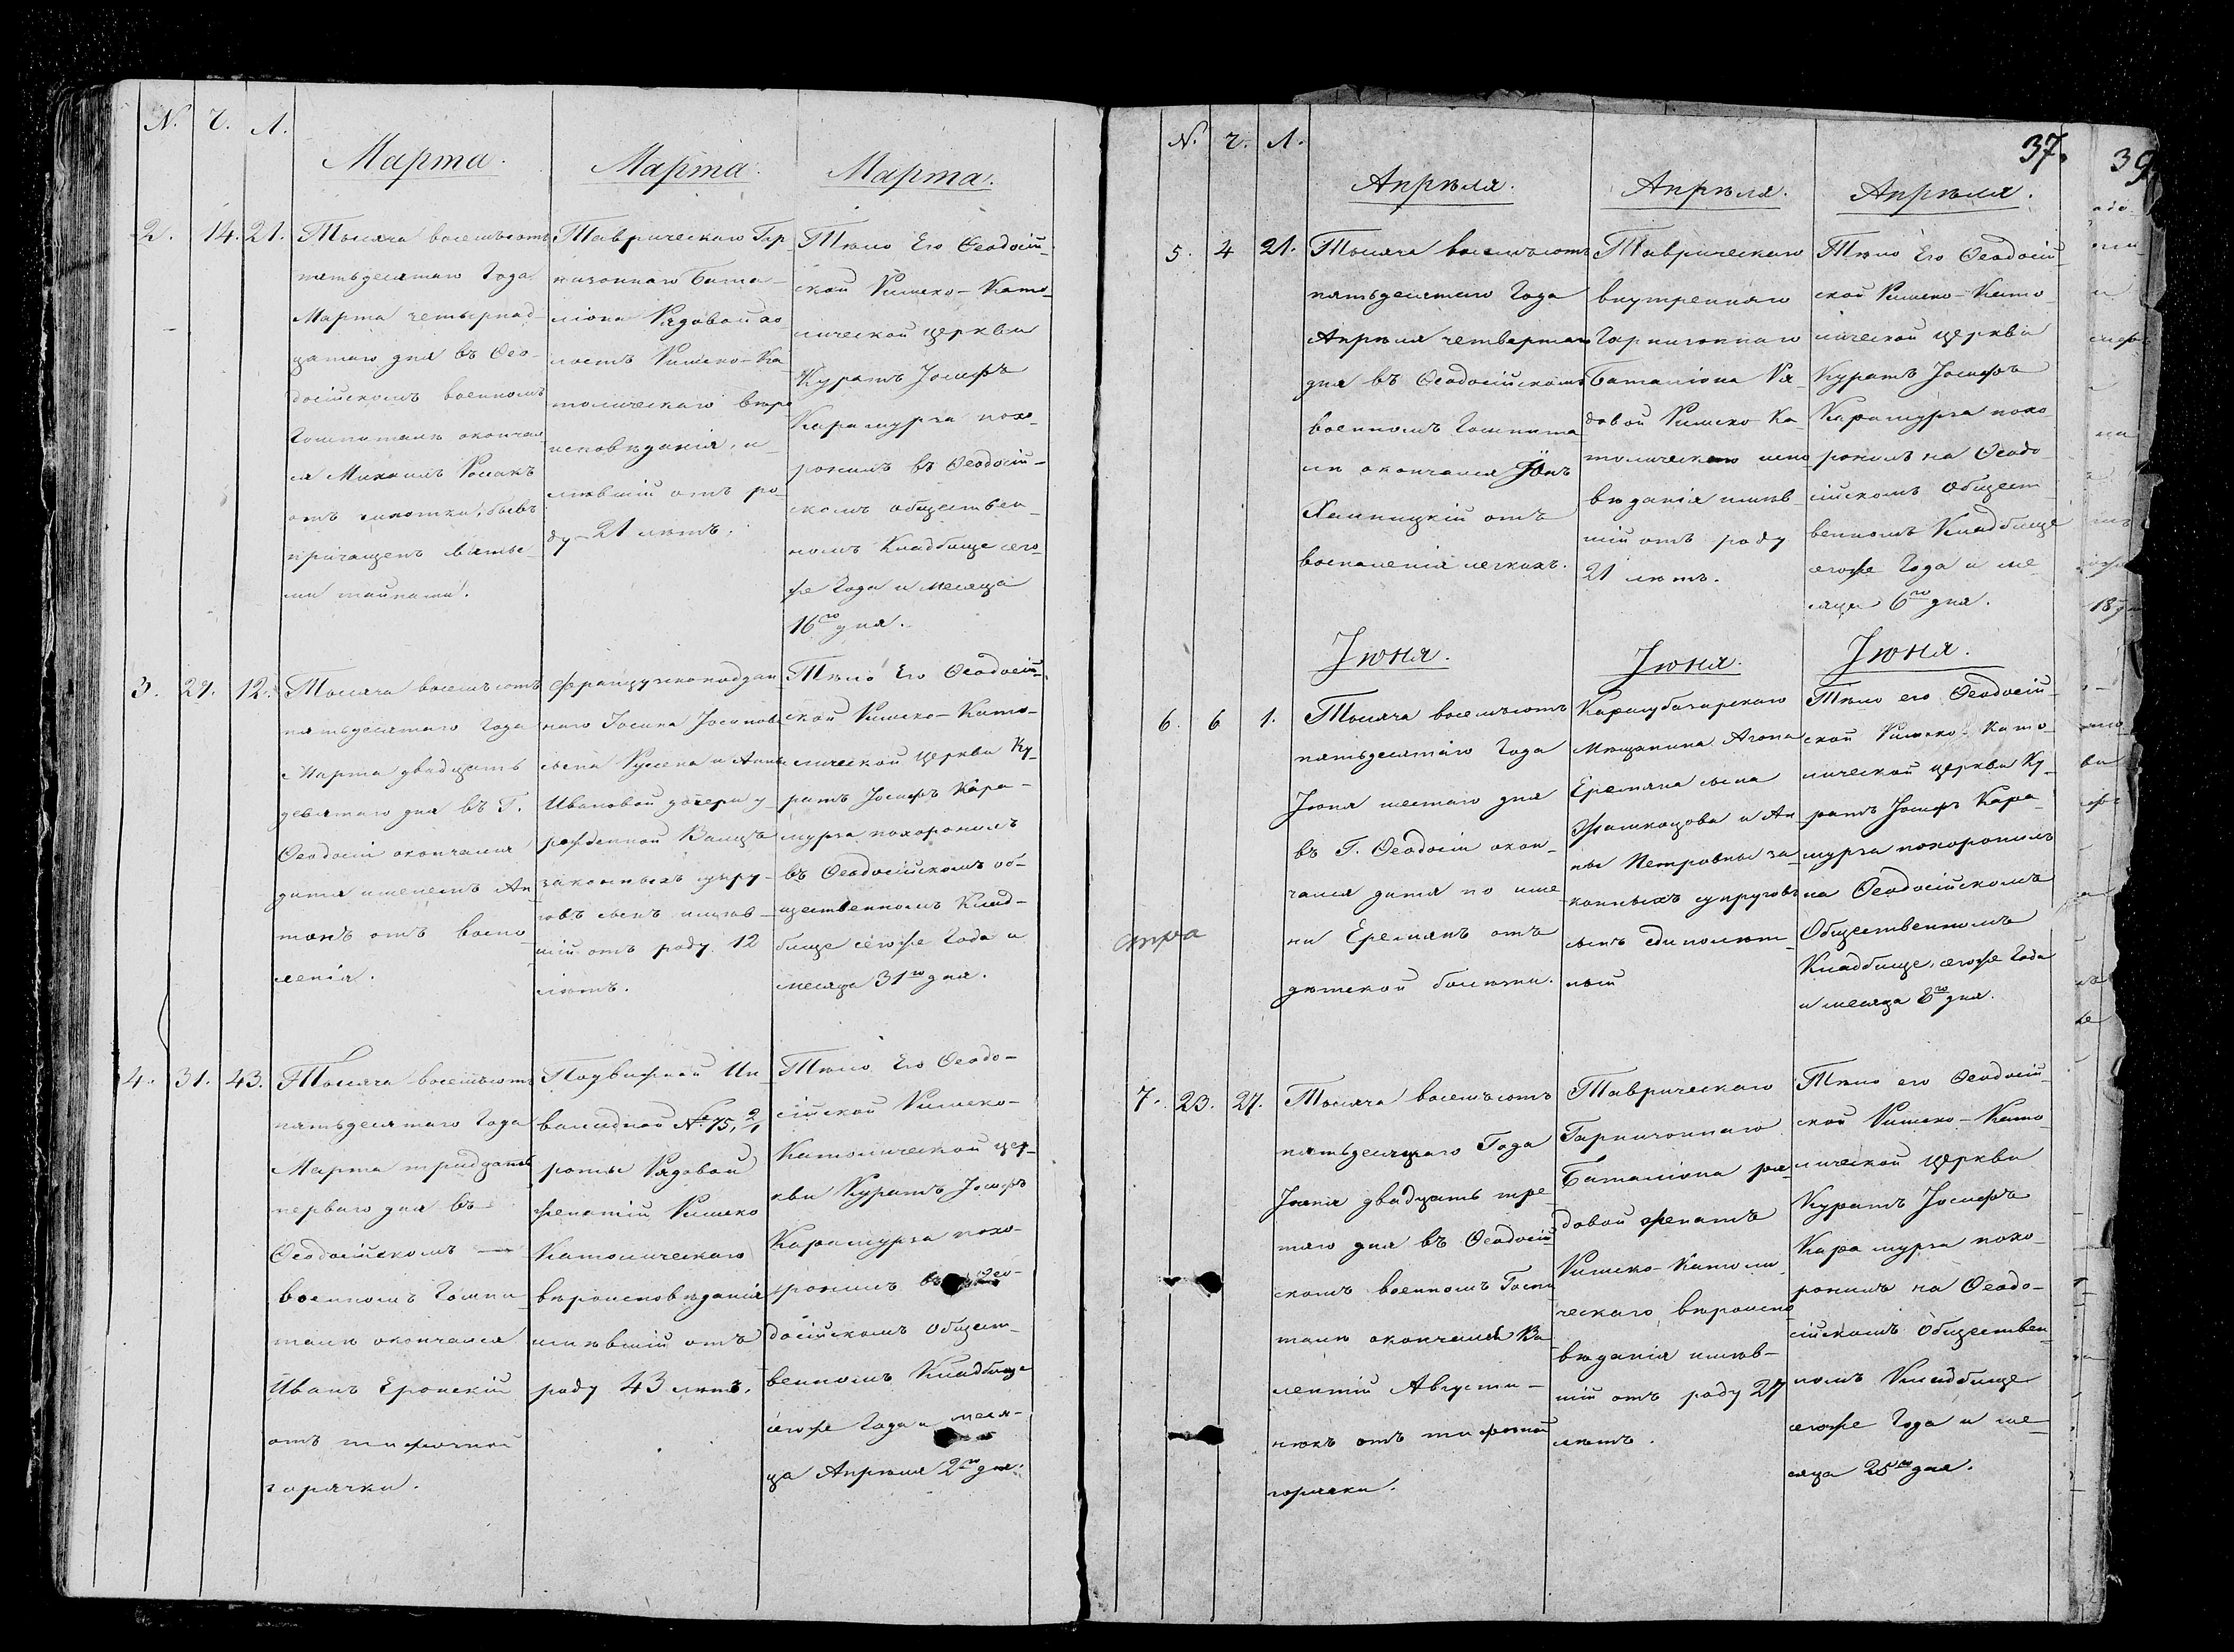 N. Ч. Л.
Марта. Марта. Марта.
2. 14. 21.
Тысяча восемьсотъ
пятьдесятаго Года
Марта четырнад-
цатаго дня въ Ѳео-
досійскомъ военномъ
Гошпиталѣ окончал
ся Михаилъ
отъ чахотки, бывъ
причащенъ святы-
ми тайнами.
Таврическаго Гар
низоннаго Бата-
ліона Рядовой хо
лостъ Римско-Ка
толическаго вѣро
исповѣданія, и-
мѣвшій отъ ро-
ду 21 лѣтъ.
Тѣло Его Ѳеодосій-
ской Римско-Като-
лической церкви
Куратъ Іосифъ
Карамурза похо-
ронилъ въ Ѳеодосій-
скомъ обществен-
номъ Кладбище сего-
же Года и месяца
16го дня.
3. 29. 12.
Тысяча восемьсотъ
пятьдесятаго Года
Марта двадцать
девятаго дня въ Г.
Ѳеодосіи окончался
дитя именемъ Ан
тонъ отъ воспа
ленія.
французкоподдан
наго
сына и Анны
Ивановой дочери у-
рожденной
законныхъ супру-
говъ сынъ имѣв-
шій отъ роду 12
лѣтъ.
Тѣло Его Ѳеодосій-
ской Римско-Като-
лической церкви Ку-
ратъ Іосифъ Кара-
мурза похоронилъ
въ Ѳеодосійскомъ об-
щественномъ Клад-
бище сегоже Года и
месяца 31го дня.
4. 31. 43.
Тысяча восемьсотъ
пятьдесятаго Года
Марта тридцать
перваго дня въ
Ѳеодосійскомъ
военномъ Гошпи
талѣ окончался
Иванъ Еронскій
отъ тифозной
горячки.
Подвижной Ин-
валидной № 75,
роты Рядовой
женатій Римско
Католическаго
вѣроисповѣданія
имѣвшій отъ
роду 43 лѣтъ.
Тѣло Его Ѳеодо-
сійской Римско-
Католической цер-
кви Куратъ Іосифъ
Карамурза похо-
ронилъ въ Ѳео-
досійскомъ общест-
венномъ Кладбище
сегоже Года и меся-
ца Апрѣля 2го дня.
37.
39
N. Ч. Л.
Апрѣля. Апрѣля. Апрѣля.
5. 4 21.
Тысяча восемьсотъ
пятьдесятаго Года
Апрѣля четвертаго
дня въ Ѳеодосійскомъ
военномъ Гошпита
ли окончался
отъ
воспаленія легкихъ.
Таврическаго
внутренняго
Гарнизоннаго
Баталіона Ря-
довой Римско Ка-
толическаго испо
вѣданія имѣв
шій отъ роду
21 лѣтъ.
Тѣло Его Ѳеодосій-
ской Римско-Като-
лической церкви
Куратъ Іосифъ
Карамурза похо-
ронилъ на Ѳеодо-
сійскомъ Общест-
венномъ Кладбище
сегоже Года и ме-
сяца 6го дня.
Іюня. Іюня. Іюня.
6. 6 1.
Тысяча восемьсотъ
пятьдесятаго Года
Іюня шестаго дня
въ Г. Ѳеодосіи окон-
чался дитя по име
ни Еремянъ отъ
дѣтской болѣзни.
Карасубазарскаго
Мещанина Агопа
Еремяна сына
и Ан
ны Петровны за-
конныхъ супруговъ
сынъ единолѣт-
ный
Тѣло его Ѳеодосій-
ской Римско-Като-
лической церкви Ку-
ратъ Іосифъ Кара-
мурза похоронилъ
на Ѳеодосійскомъ
Общественномъ
Кладбище, сегоже Года
и месяца 8го дня.
7. 23. 27.
Тысяча восемьсотъ
пятьдесятаго Года
Іюня двадцать тре
тяго дня въ Ѳеодосій
скомъ военномъ Госпи
талѣ окончался Ва-
лентій Августи-
нюкъ отъ тифозной
горячки.
Таврическаго
Гарнизоннаго
Баталіона ря-
довой женатъ
Римско-Католи-
ческаго вѣроиспо
вѣданія имѣв-
шій отъ роду 27
лѣтъ.
Тѣло его Ѳеодосій-
ской Римско-Като
лической церкви
Куратъ Іосифъ
Карамурза похо-
ронилъ на Ѳеодо-
сійскомъ Обществен-
номъ Кладбище
сегоже Года и ме-
сяца 25го дня.